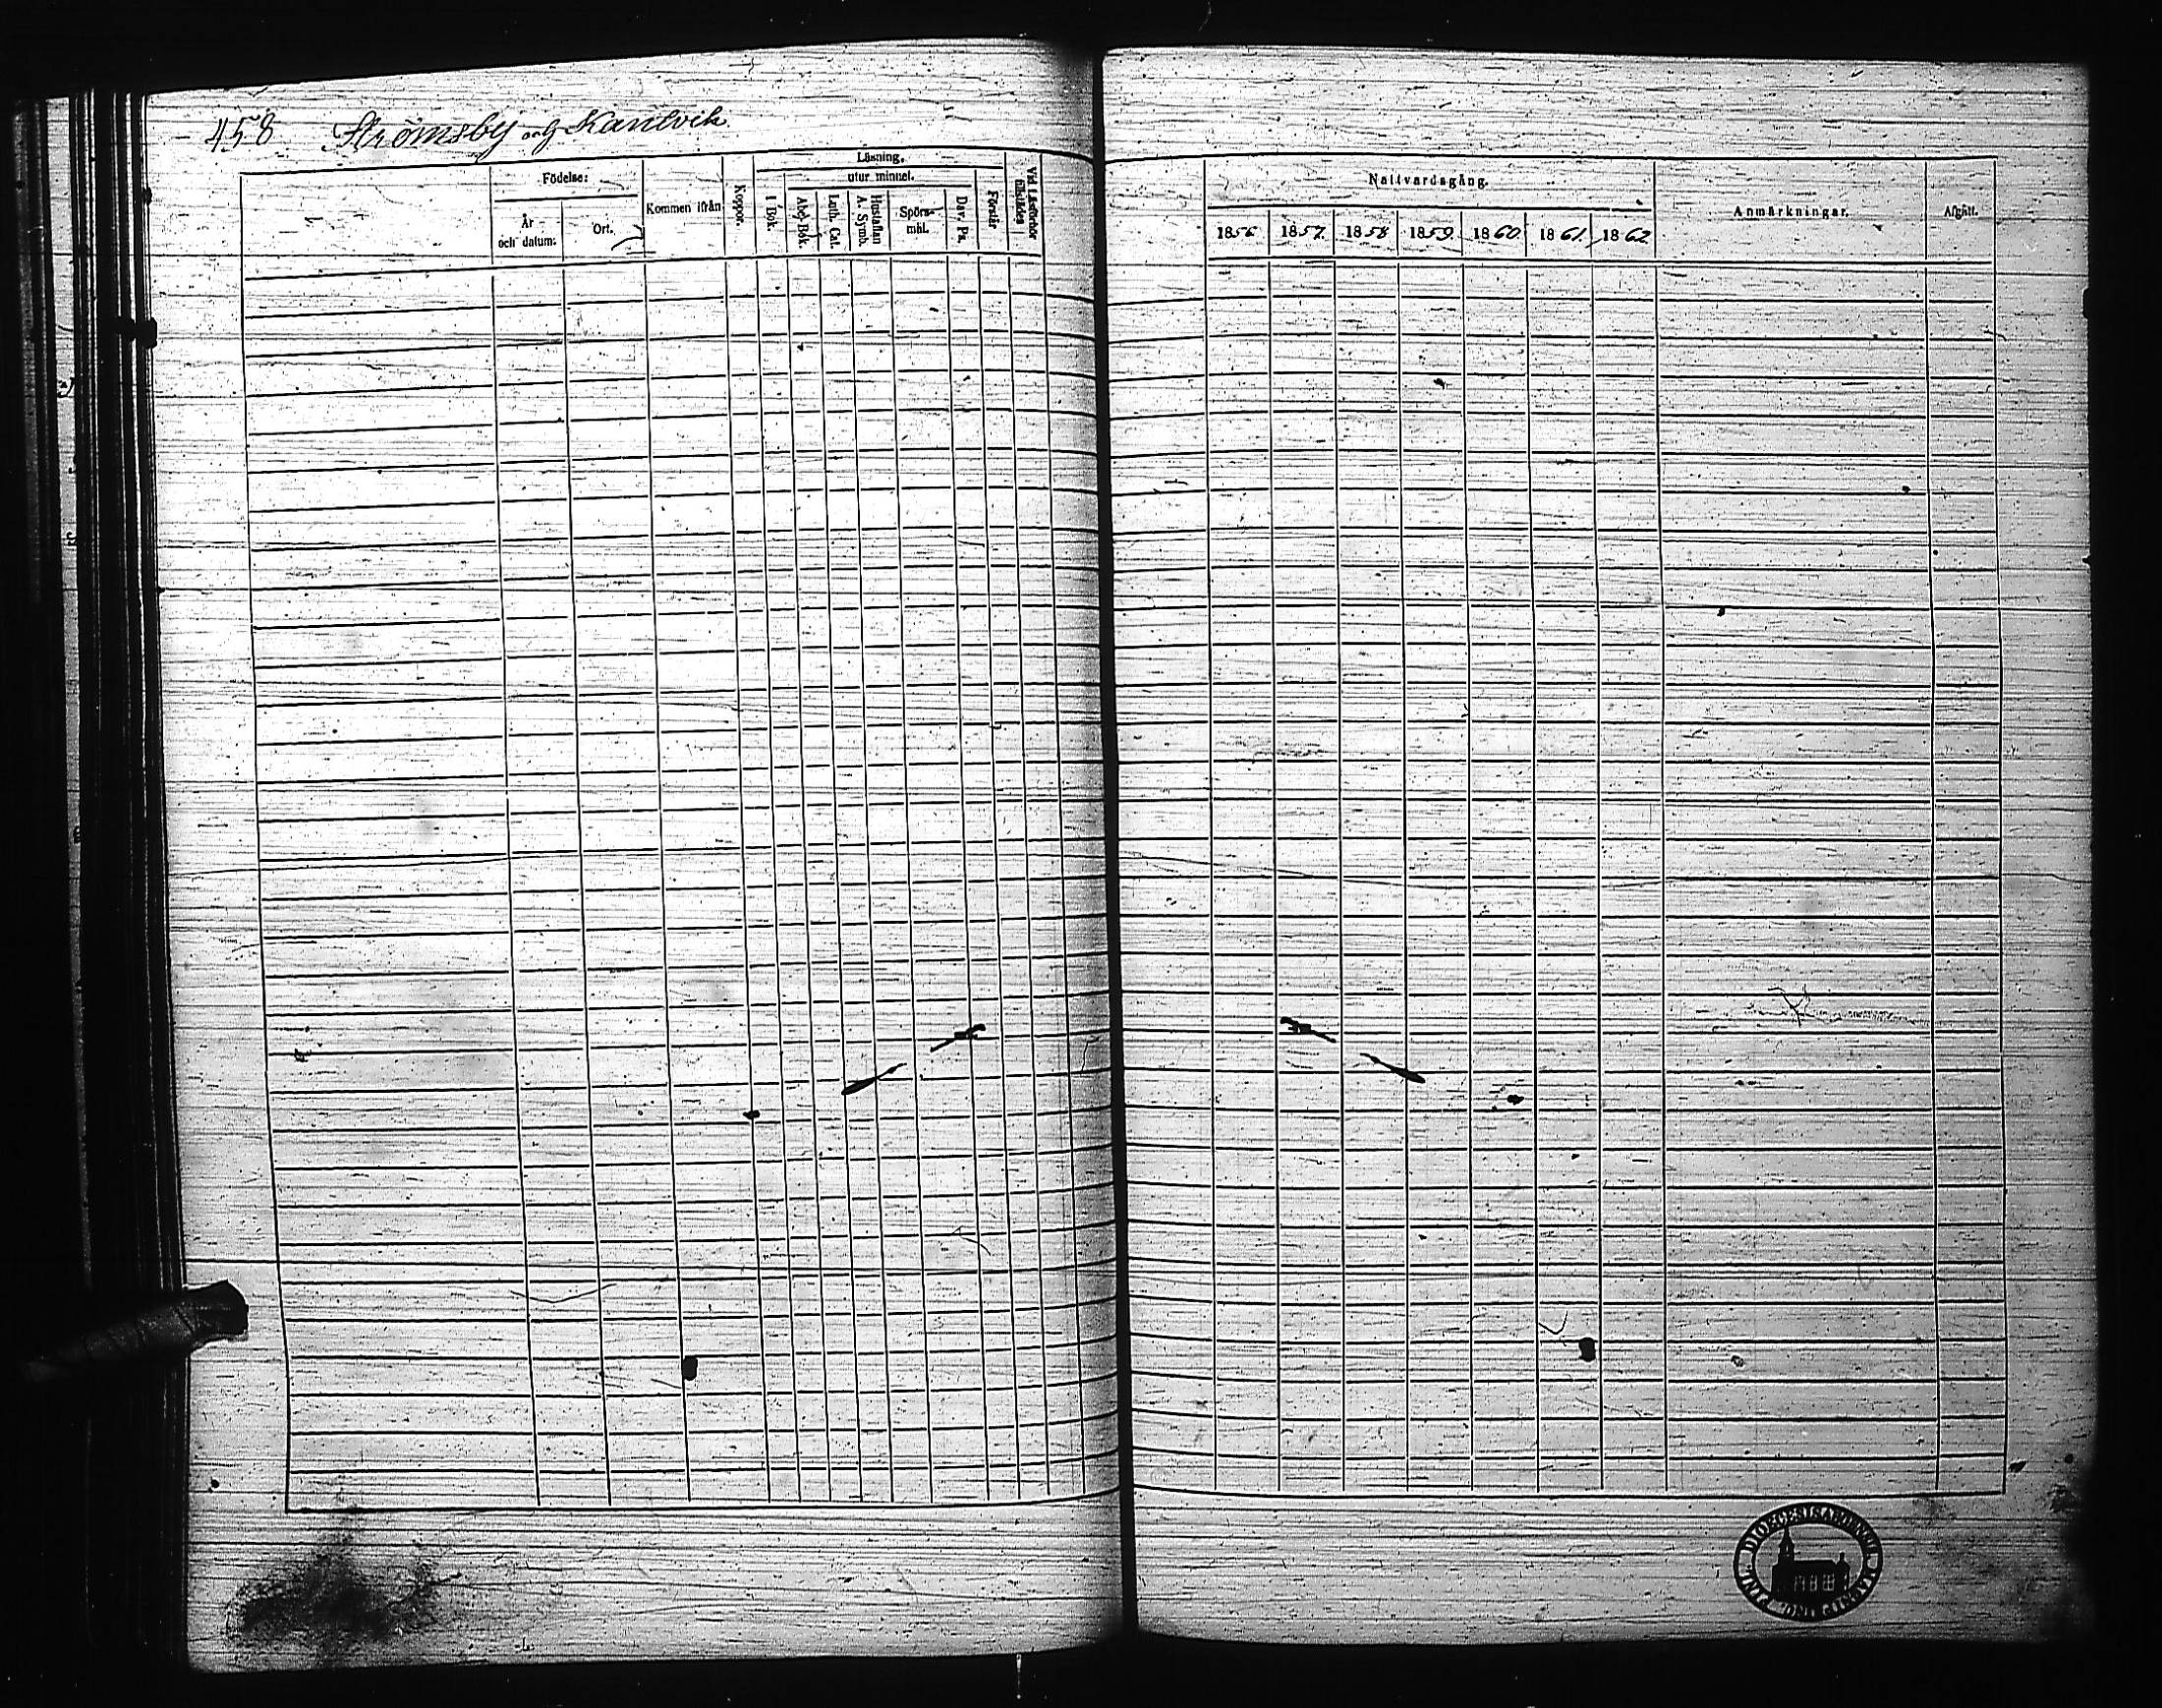 458 Strömsby och Kantvik
Födelse:
År och datum:
Ort.
Kommen ifrån
Koppor.
Läsning.
utur minnet.
I Bok.
Abc-Bok.
Luth. Cat.
Hustaflan A. Symb.
Spörs-mål.
Dav. Ps.
Förstår
Vid Läsförhör
Nattvardsgång.
1856 1857. 1858 1859. 1860. 1861. 1862.
Anmärkningar.
Afgått.